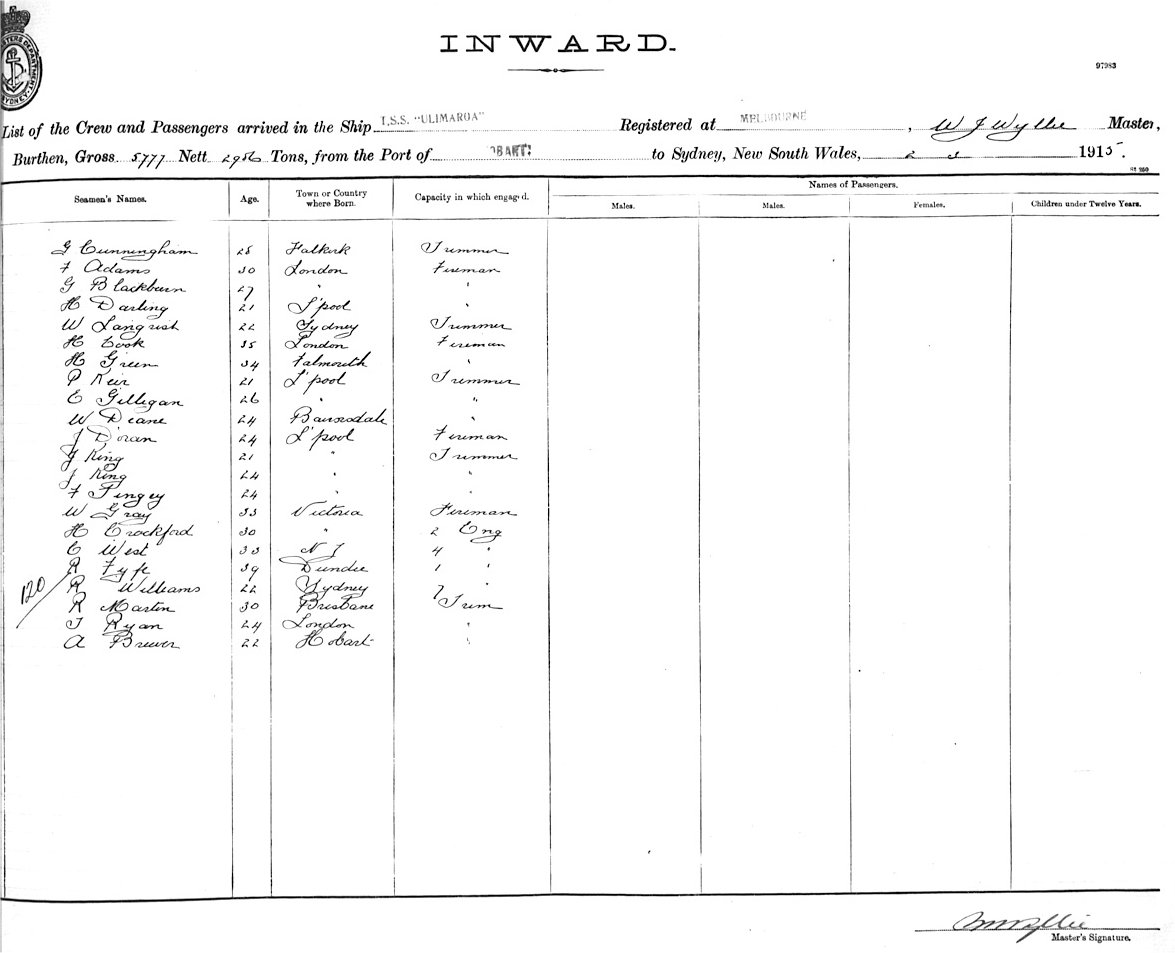 INWARD.
97983
List of the Crew and Passengers arrived in the Ship T.S.S. "ULIMAROA" Registered at MELBOURNE, W J Wyllie Master,
Burthen, Gross 5777 Nett 2956 Tons, from the Port of OBART to Sydney, New South Wales, 2 3 1915.
St 250
Seamen's Names. Age. Town or Country where Born. Capacity in which engaged. Names of Passengers.
Males. Males. Females. Children under Twelve Years.
G Cunningham 28 Falkirk Trimmer
F Adams 30 London Fireman
G Blackburn 27 " "
H Darling 21 L'pool "
W Langrish 22 Sydney Trimmer
H Cook 35 London Fireman
H Green 34 Falmouth "
P Keir 21 L'pool Trimmer
E Gilligan 26 " "
W Deane 24 Bairnsdale "
J Doran 24 L'pool Fireman
J King 21 " Trimmer
J King 24 " "
F Tingey 24 " "
W Gray 33 Victoria Fireman
H Crockford 30 " 2 Eng
C West 33 N Z 4 "
R Fyfe 39 Dundee 1 "
120 R Williams 22 Sydney 7 "
R Martin 30 Brisbane Trim
T Ryan 24 London "
A Brewer 22 Hobart "
Master's Signature.